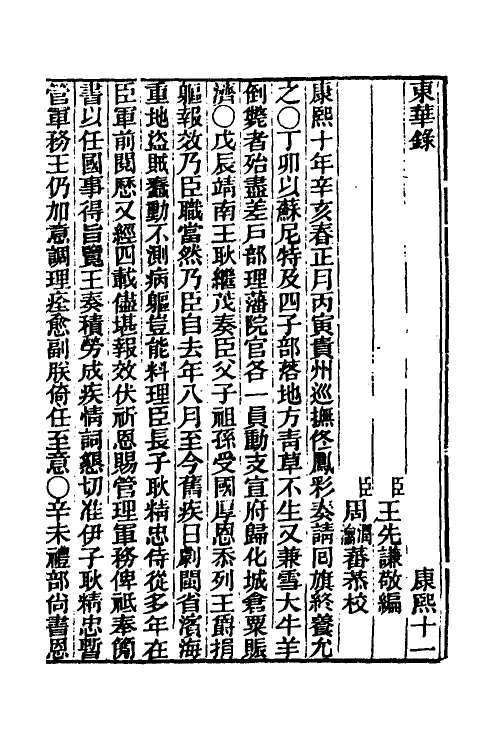 東華錄 康熙十一
臣王先謙敬編
臣周潤蕃恭校
康熙十年辛亥春正月丙寅貴州巡撫佟鳳彩奏請回旗終養允
之〇丁卯以蘇尼特及四子部落地方靑草不生又兼雪大牛羊
倒斃者殆盡差戶部理藩院官各一員動支宣府歸化城倉粟賑
濟〇戊辰靖南王耿繼茂奏臣父子祖孫受國厚恩忝列王爵捐
軀報效乃臣職當然乃臣自去年八月至今舊疾日劇閩省濱海
重地盜賊蠢動不測病軀豈能料理臣長子耿精忠侍從多年在
臣軍前閱歷又經四載儘堪報效伏祈恩賜管理軍務俾祗奉簡
書以任國事得旨覽王奏積勞成疾情詞懇切准伊子耿精忠暫
管軍務王仍加意調理痊愈副朕倚任至意〇辛未禮部尙書恩